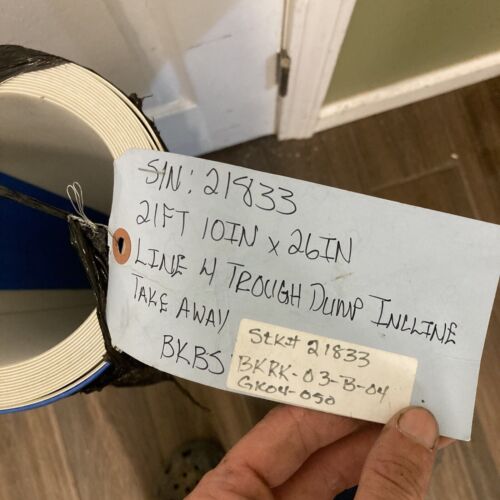 S/N: 21833
21FT 10IN x 26IN
LINE 4 TROUGH DUMP INCLINE
TAKE AWAY
BKBS
Stk# 21833
BKRK-03-B-04
GK04-050